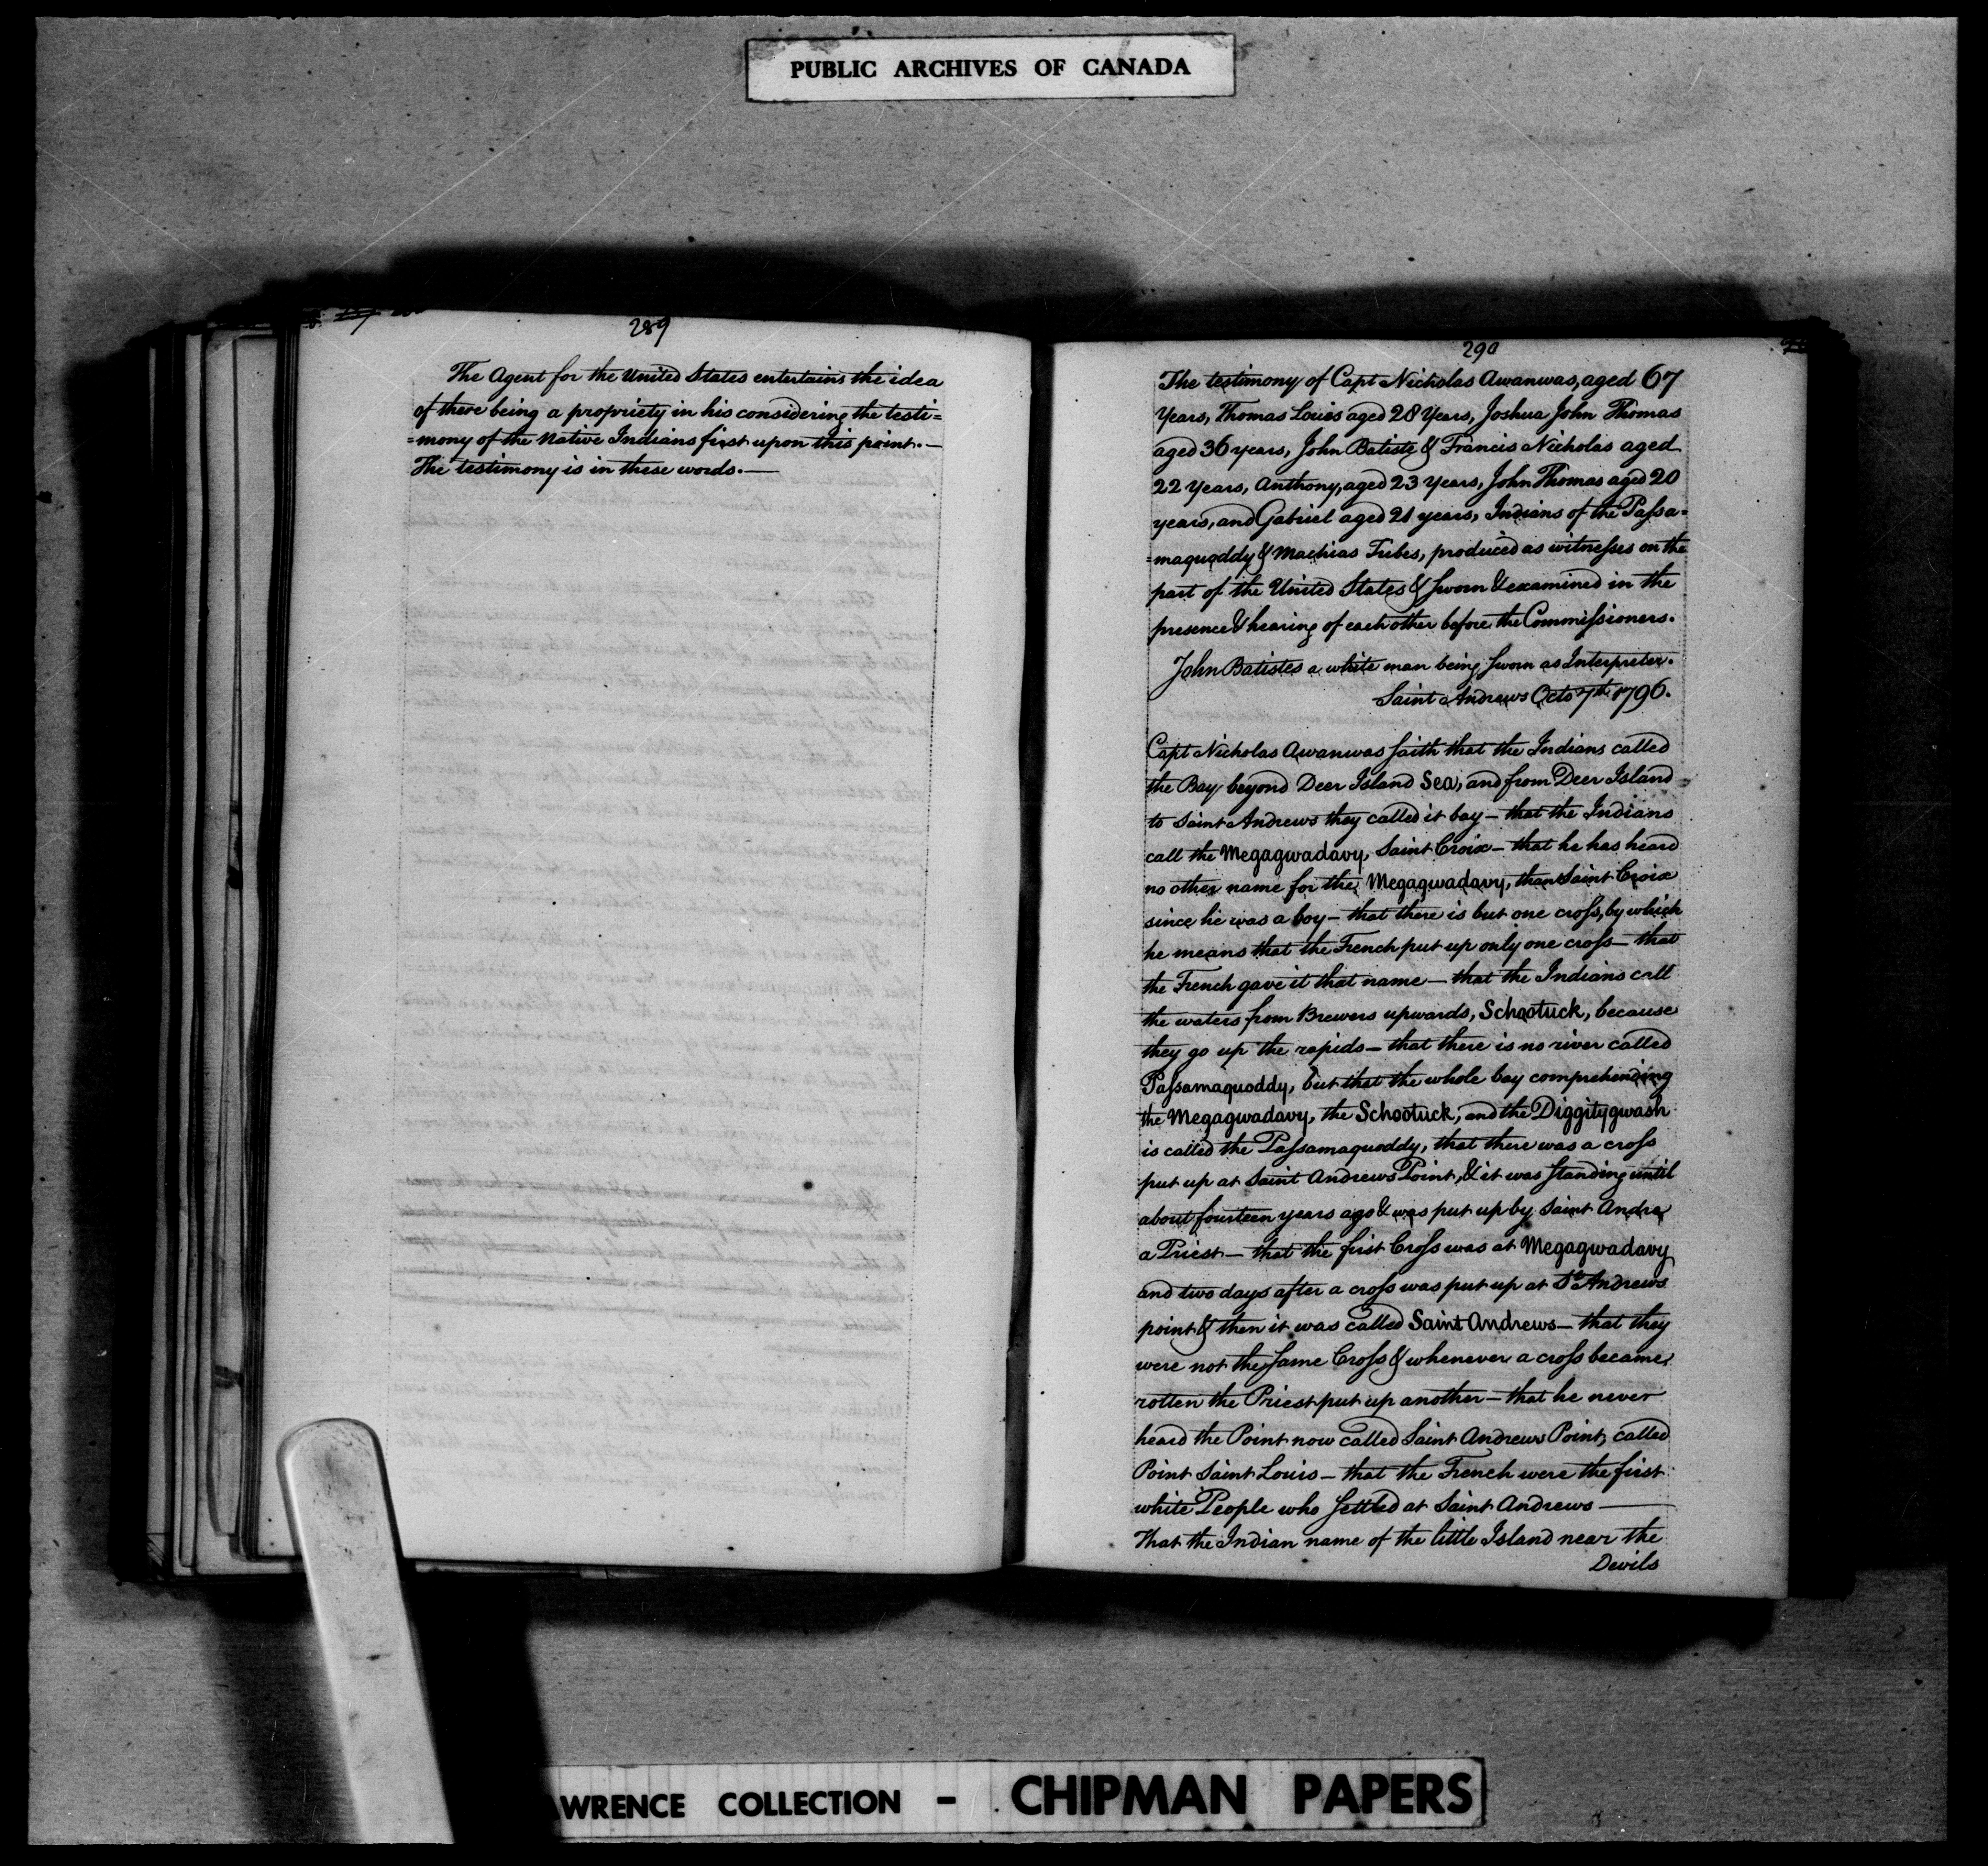 PUBLIC ARCHIVES OF CANADA
289
The Agent for the United States entertains the idea
of there being a propriety in his considering the testi=
=mony of the Native Indians first upon this point.—
The testimony is in these words.—
290
The testimony of Capt Nicholas Awanwas, aged 67
Years, Thomas Louis aged 28 Years, Joshua John Thomas
aged 36 years, John Batiste & Francis Nicholas aged
22 Years, Anthony, aged 23 Years, John Thomas aged 20
years, and Gabriel aged 21 years, Indians of the Passa=
=maquoddy & Machias Tribes, produced as witnesses on the
part of the United States & sworn & examined in the
presence & hearing of each other before the Commissioners.
John Batistes a white man being sworn as Interpreter.
Saint Andrews Octo 7th 1796.
Capt Nicholas Awanwas saith that the Indians called
the Bay beyond Deer Island Sea, and from Deer Island
to Saint Andrews they called it bay — that the Indians
call the Megagwadavy, Saint Croix — that he has heard
no other name for the Megagwadavy, than Saint Croix
since he was a boy — that there is but one cross, by which
he means that the French put up only one cross — that
the French gave it that name — that the Indians call
the waters from Brewers upwards, Schootuck, because
they go up the rapids — that there is no river called
Passamaquoddy, but that the whole bay comprehending
the Megagwadavy, the Schootuck, and the Diggitygwash
is called the Passamaquoddy, that there was a cross
put up at Saint Andrews Point, & it was standing until
about fourteen years ago & was put up by Saint Andre
a Priest — that the first Cross was at Megagwadavy
and two days after a cross was put up at St Andrews
point & then it was called Saint Andrews — that they
were not the same Cross & whenever a cross became
rotten the Priest put up another — that he never
heard the Point now called Saint Andrews Point, called
Point Saint Louis — that the French were the first
white People who settled at Saint Andrews —
That the Indian name of the little Island near the
Devils
WRENCE COLLECTION - CHIPMAN PAPERS